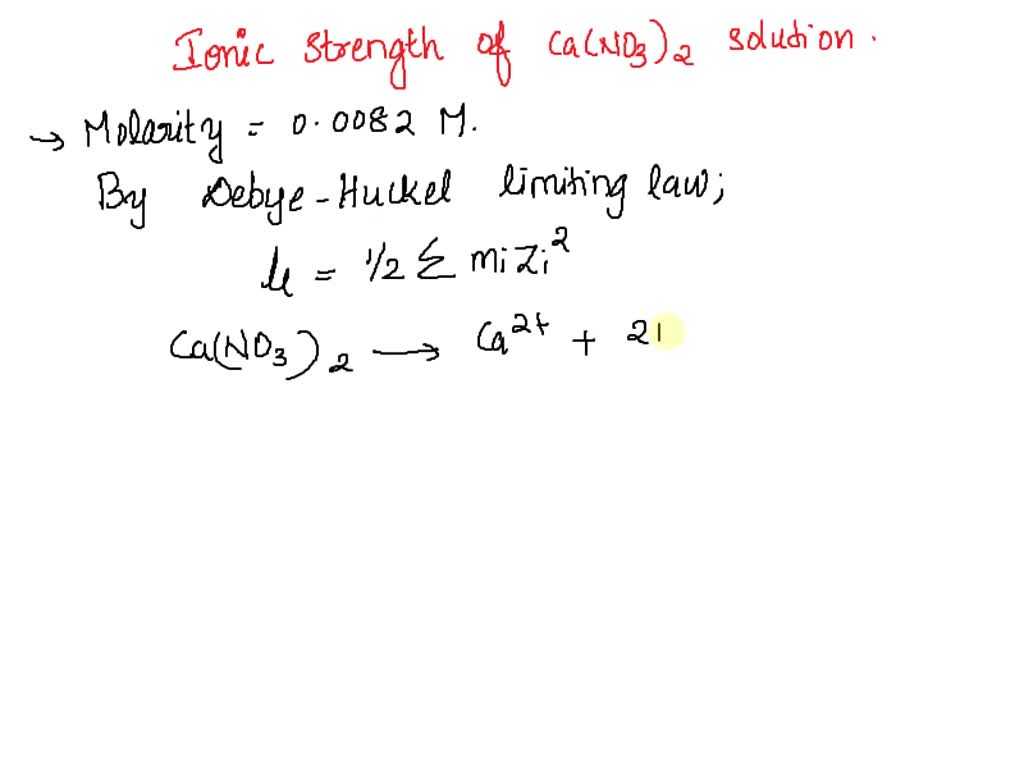 Ionic strength of Ca(NO3)2 solution.
→ Molarity = 0.0082 M.
By Debye-Huckel limiting law;
μ = 1/2 Σ mi Zi²
Ca(NO3)2 ⟶ Ca²⁺ + 2l